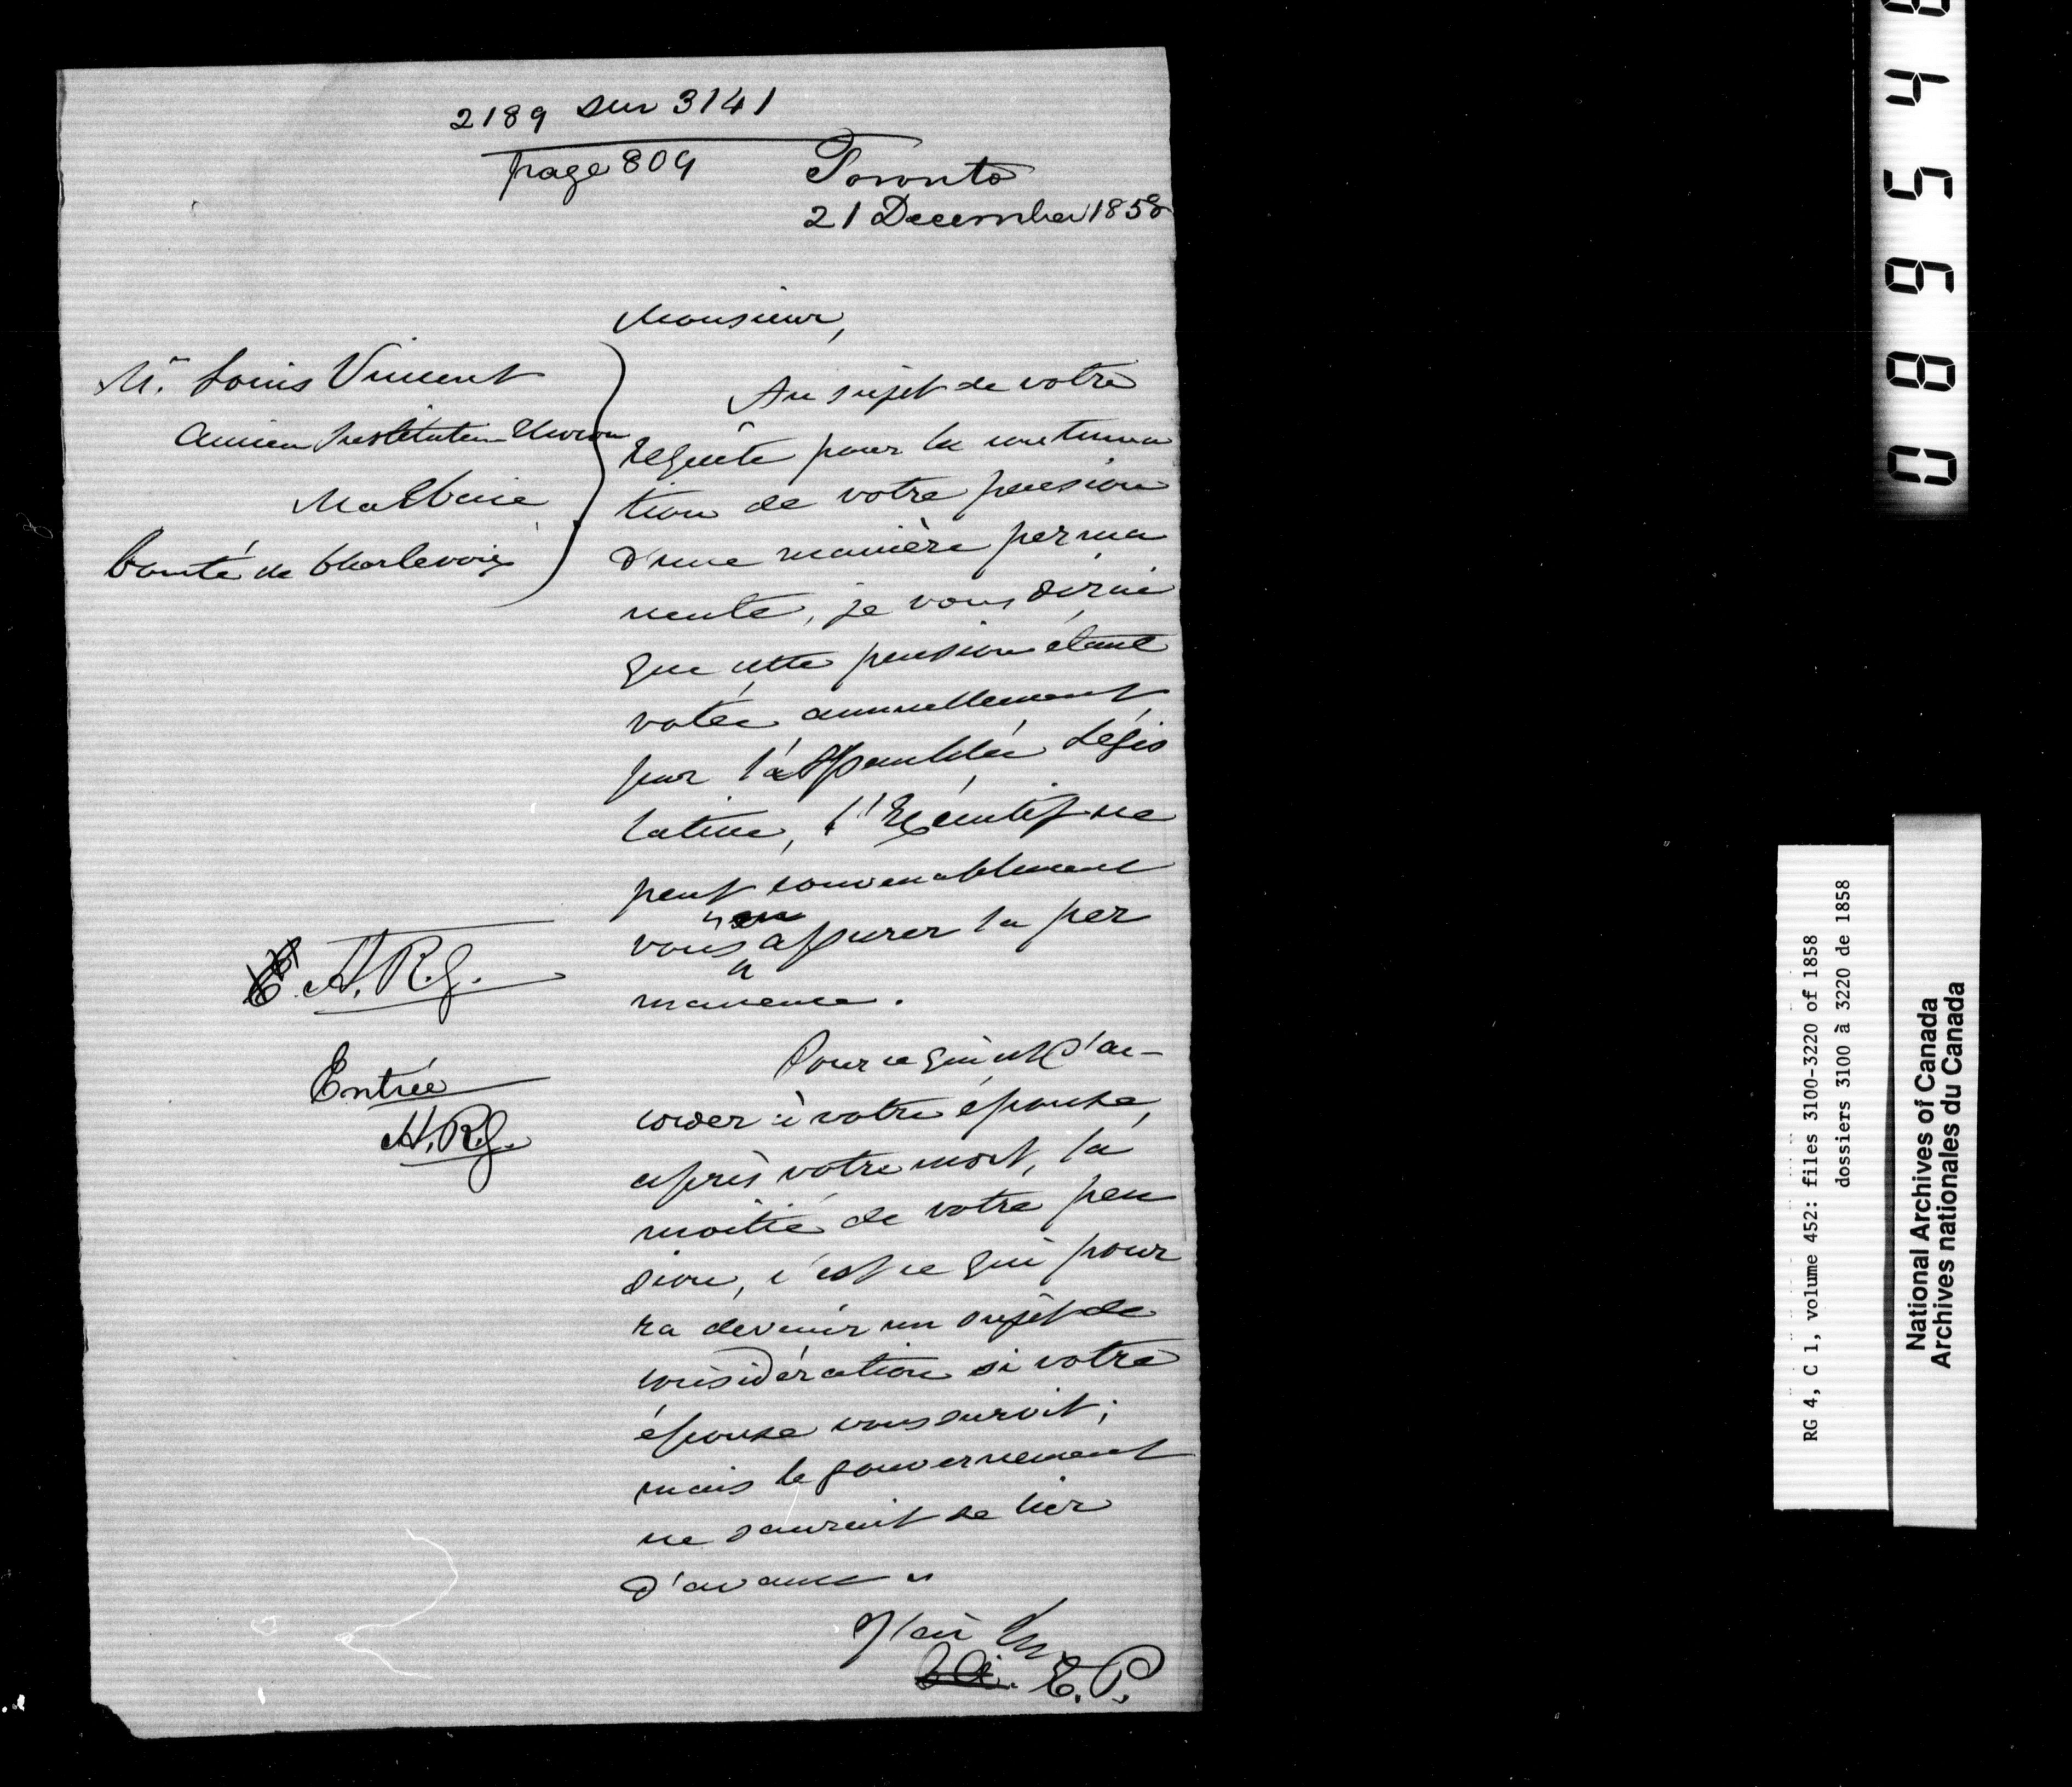 2189 sur 3141
page 809
Toronto
21 December 1858
Monsieur,
Mr. Louis Vincent
Ancien Instituteur Huron
Malbaie
Comté de Charlevoix
Au sujet de votre
requête pour la continua
tion de votre pension
d'une manière perma
nente, je vous dirai
que cette pension étant
votée annuellement
par l'assemblée Légis
lative, l'Exécutif ne
peut convenablement
vous en assurer la per
manence.
Pour ce qui est d'ac-
corder à votre épouse,
après votre mort, la
moitié de votre pen
sion, c'est ce qui pour
ra devenir un sujet de
considération si votre
épouse vous survit;
mais le gouvernement
ne saurait se lier
d'avance.
J'ai
E. P.
H. R. G.
Entrée
H. R. G.
RG 4, C 1, volume 452: files 3100-3220 of 1858
dossiers 3100 à 3220 de 1858
National Archives of Canada
Archives nationales du Canada